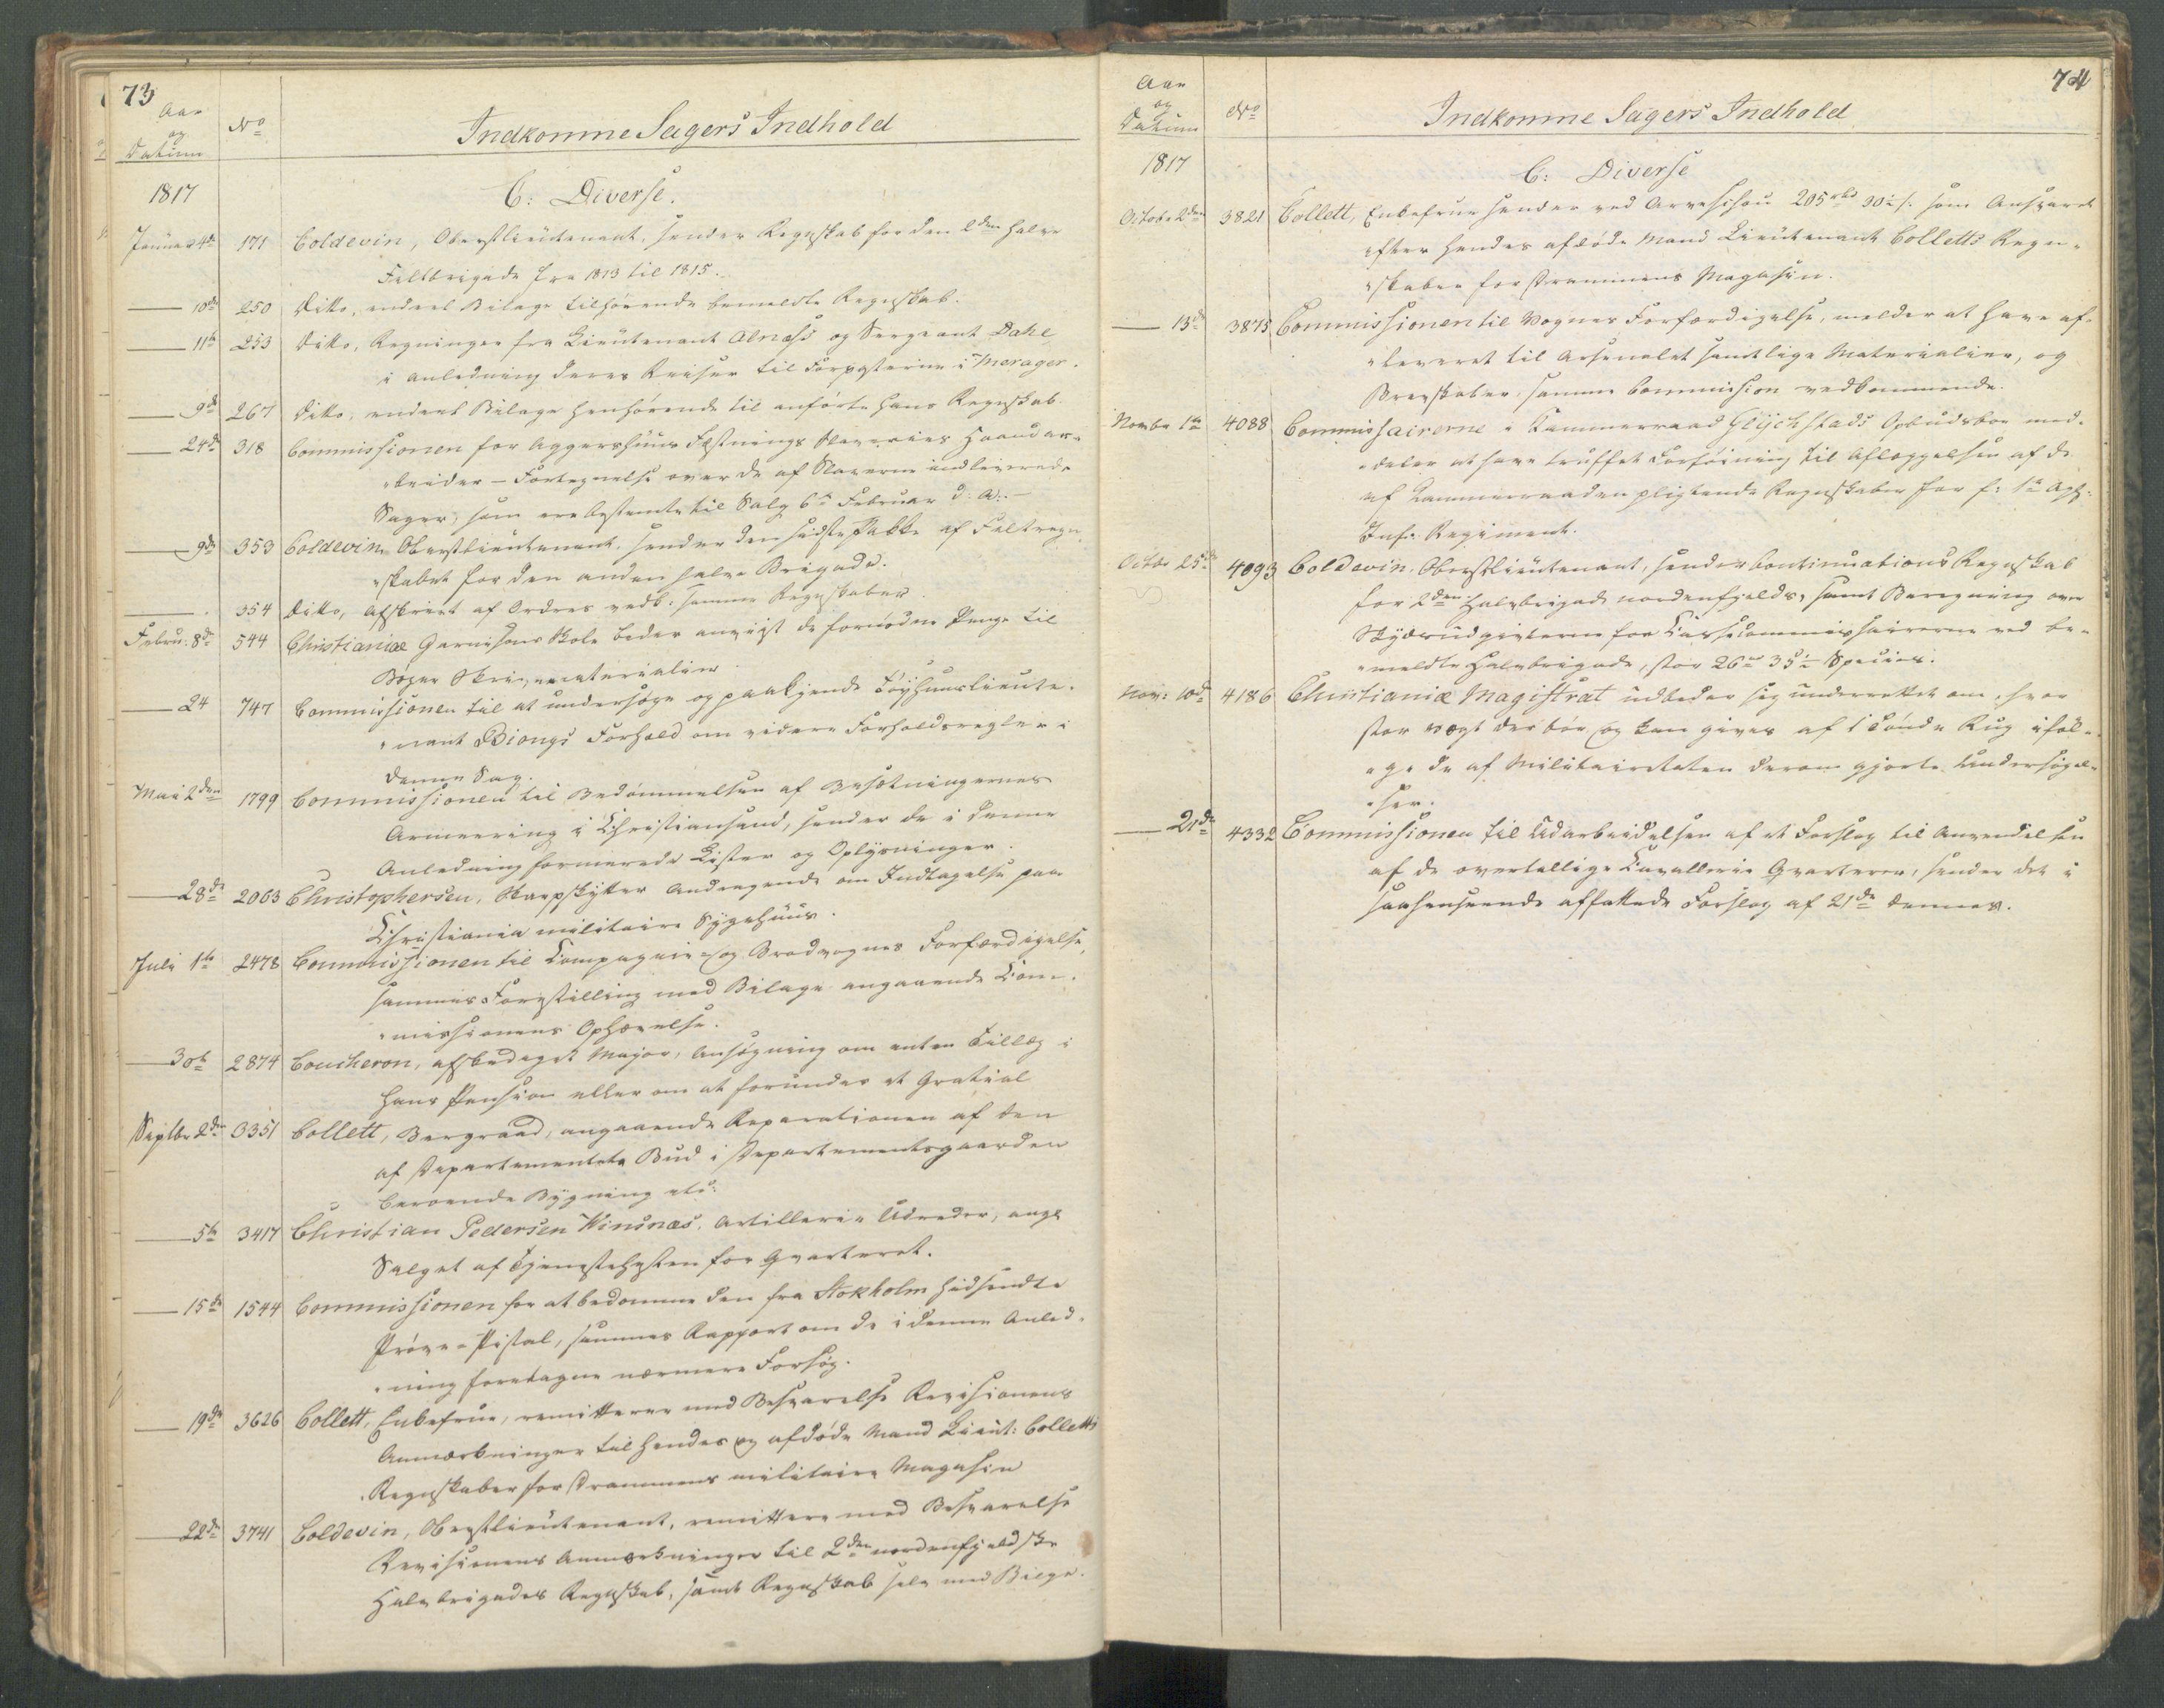 73
Aar
og
Datum
No
Indkomne Sagers Indhold
1817
C: Diverse.
Januar 4de 171 Coldevin, Oberstlieutenant, sender Regnskab for den 2den halve
Feltbrigade fra 1813 til 1815.
— 10de 250 Ditto, endeel Bilage tilhørende bemeldte Regnskab.
— 11te 253 Ditto, Regninger fra Lieutenant Alnæss og Sergeant Dahl
i Anledning deres Reiser til Forposterne i Merager.
— 9de 267 Ditto, endeel Bilage henhørende til anførte hans Regnskab.
— 24de 318 Commissionen for Aggershuus Festnings Slaveries Haandar-
beider – Fortegnelse over de af Slaverne indleverede
Sager, som ere bestemte til Salg 6te Februar d: A: –
— 9de 353 Coldevin Oberstlieutenant, sender den sidste Pakke af Feltregn-
skabet for den anden halve Brigade.
— 354 Ditto, Afskrivt af Ordres vedk: samme Regnskaber.
Febru: 8de 544 Christianiæ Garnisons Skole beder anviist de fornødne Penge til
Bøger Skrivematerialier.
— 24 747 Commissionen til at undersøge og paakjende Tøyhuuslieute-
nant Biongs Forhold om videre Forholdsregler i
denne Sag.
Mai 2den 1799 Commissionen til Bedømmelsen af Besætningernes
Armeering i Christiansand, sender de i denne
Anledning formerede Lister og Oplysninger.
— 28de 2063 Christophersen, Skarpskytter Andragende om Indtagelse paa
Christiania militaire Sygehuus.
Juli 1te 2478 Commissionen til Compagnie- og Brødvognes Forfærdigelse,
sammes Forestilling med Bilage angaaende Com-
missionens Ophævelse.
— 30te 2874 Coucheron, afskediget Major, Ansøgning om enten Tillæg i
hans Pension eller om at forundes et Gratial
Septbr 2den 3351 Collett, Bergraad, angaaende Reparationen af den
af Departementets Bud i Departementsgaarden
beroende Bygning etc:
— 5te 3417 Christian Pedersen Winsnæs, Artillerie Udreder, angl
Salget af Tjenestehesten for Qvarteret.
— 15de 1544 Commissionen for at bedømme den fra Stokholm hidsendte
Prøve-Pistol, sammes Rapport om de i denne Anled-
ning foretagne nærmere Forsøg.
— 19de 3626 Collett, Enkefrue, remitterer med Besvarelse Revisionens
Anmærkninger til hendes og afdøde Mand Lieut: Colletts
Regnskaber for Drammens militaire Magasin
— 22de 3741 Coldevin, Oberstlieutenant, remittere med Besvarelse
Revisionens Anmærkninger til 2den nordenfjeldske
Halvbrigades Regnskab, samt Regnskab selv med Bilge.
74
Aar
og
Datum
No
Indkomne Sagers Indhold
1817
C: Diverse
Octobr 2den 3821 Collett, Enkefrue sender ved Arveskou 205 rbd 30 s. som Ansvaret
efter hendes afdøde Mand Lieutenant Colletts Regn-
skaber for Drammens Magasin.
— 13de 3875 Commissionen til Vognes Forfærdigelse, melder at have af-
leveret til Arsenalet samtlige Materialier, og
Brevskaber samme Commission vedkommende.
Novbr 1te 4088 Commissairerne i Kammerraad Glychstads Opbudsboe med-
deler at have truffet Forføining til Aflæggelsen af de
af Kammerraaden pligtende Regnskaber for f: 1te Agh:
Inf: Regiment.
Octbr 25de 4093 Coldevin, Oberstlieutenant, sender Continuations Regnskab
for 2den Halvbrigade nordenfjelds, samt Beregning over
Skydsudgivterne for Kassecommissairerne ved be-
meldte Halvbrigade, stor 26 35 Species.
Nov: 10de 4186 Christianiæ Magistrat udbeder sig underrettet om, hvor
stor Vægt der bør og kan gives af 1 Tønde Rug iføl-
ge de af Militairetaten derom gjorte Undersøgel-
ser.
— 21de 4332 Commissionen til Udarbeidelsen af et Forslag til Anvendelsen
af de overtallige Cavallerie Qvarterer, sender det i
saahenseende affattede Forslag af 21de dennes.